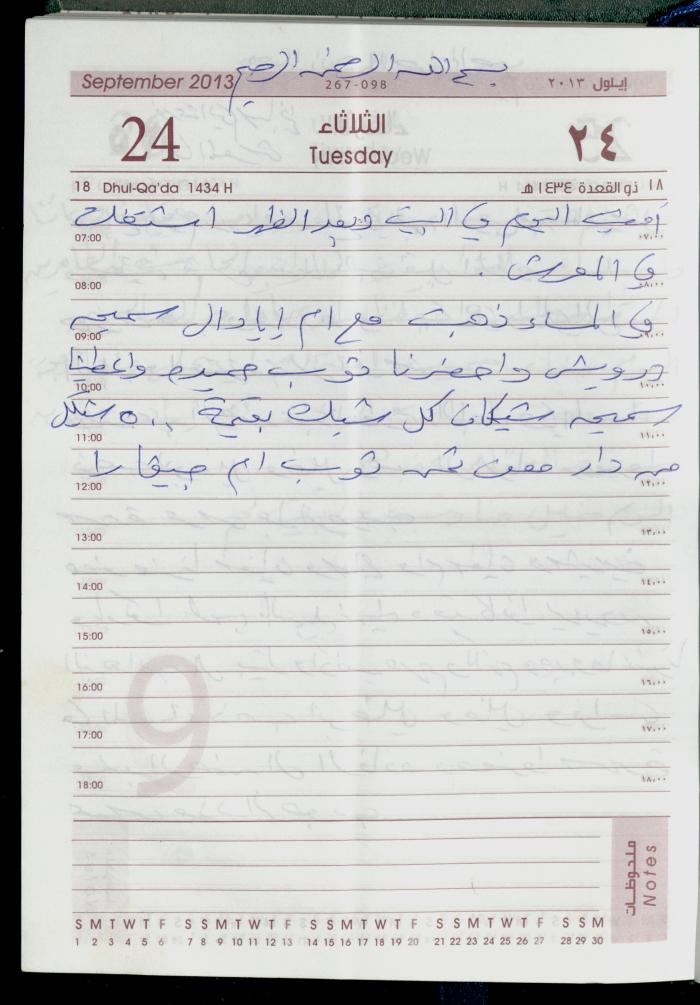 بسم الله الرحمن الرحيم
September 2013 267-098 إيلول ٢٠١٣
24 الثلاثاء ٢٤
Tuesday
18 Dhul-Qa'da 1434 H ١٨ ذو القعدة ١٤٣٤ هـ
أمضيت اليوم في البيت وبعد الظهر اشتغلت
07:00 ٠٧،٠٠
في المعرش .
08:00 ٠٨،٠٠
في المساء ذهبت مع ام إياد ال سميحه
09:00 ٠٩،٠٠
درويش واحضرنا ثوب حميده واعطينا
10:00 ١٠،٠٠
سميحه شيكان كل شيك بقيمة ٥٠٠ شيكل
11:00 ١١،٠٠
من دار ثمن ثوب ام جيفارا
12:00 ١٢،٠٠
13:00 ١٣،٠٠
14:00 ١٤،٠٠
15:00 ١٥،٠٠
16:00 ١٦،٠٠
17:00 ١٧،٠٠
18:00 ١٨،٠٠
9
ملحوظات
Notes
S M T W T F S S M T W T F S S M T W T F S S M T W T F S S M
1 2 3 4 5 6 7 8 9 10 11 12 13 14 15 16 17 18 19 20 21 22 23 24 25 26 27 28 29 30